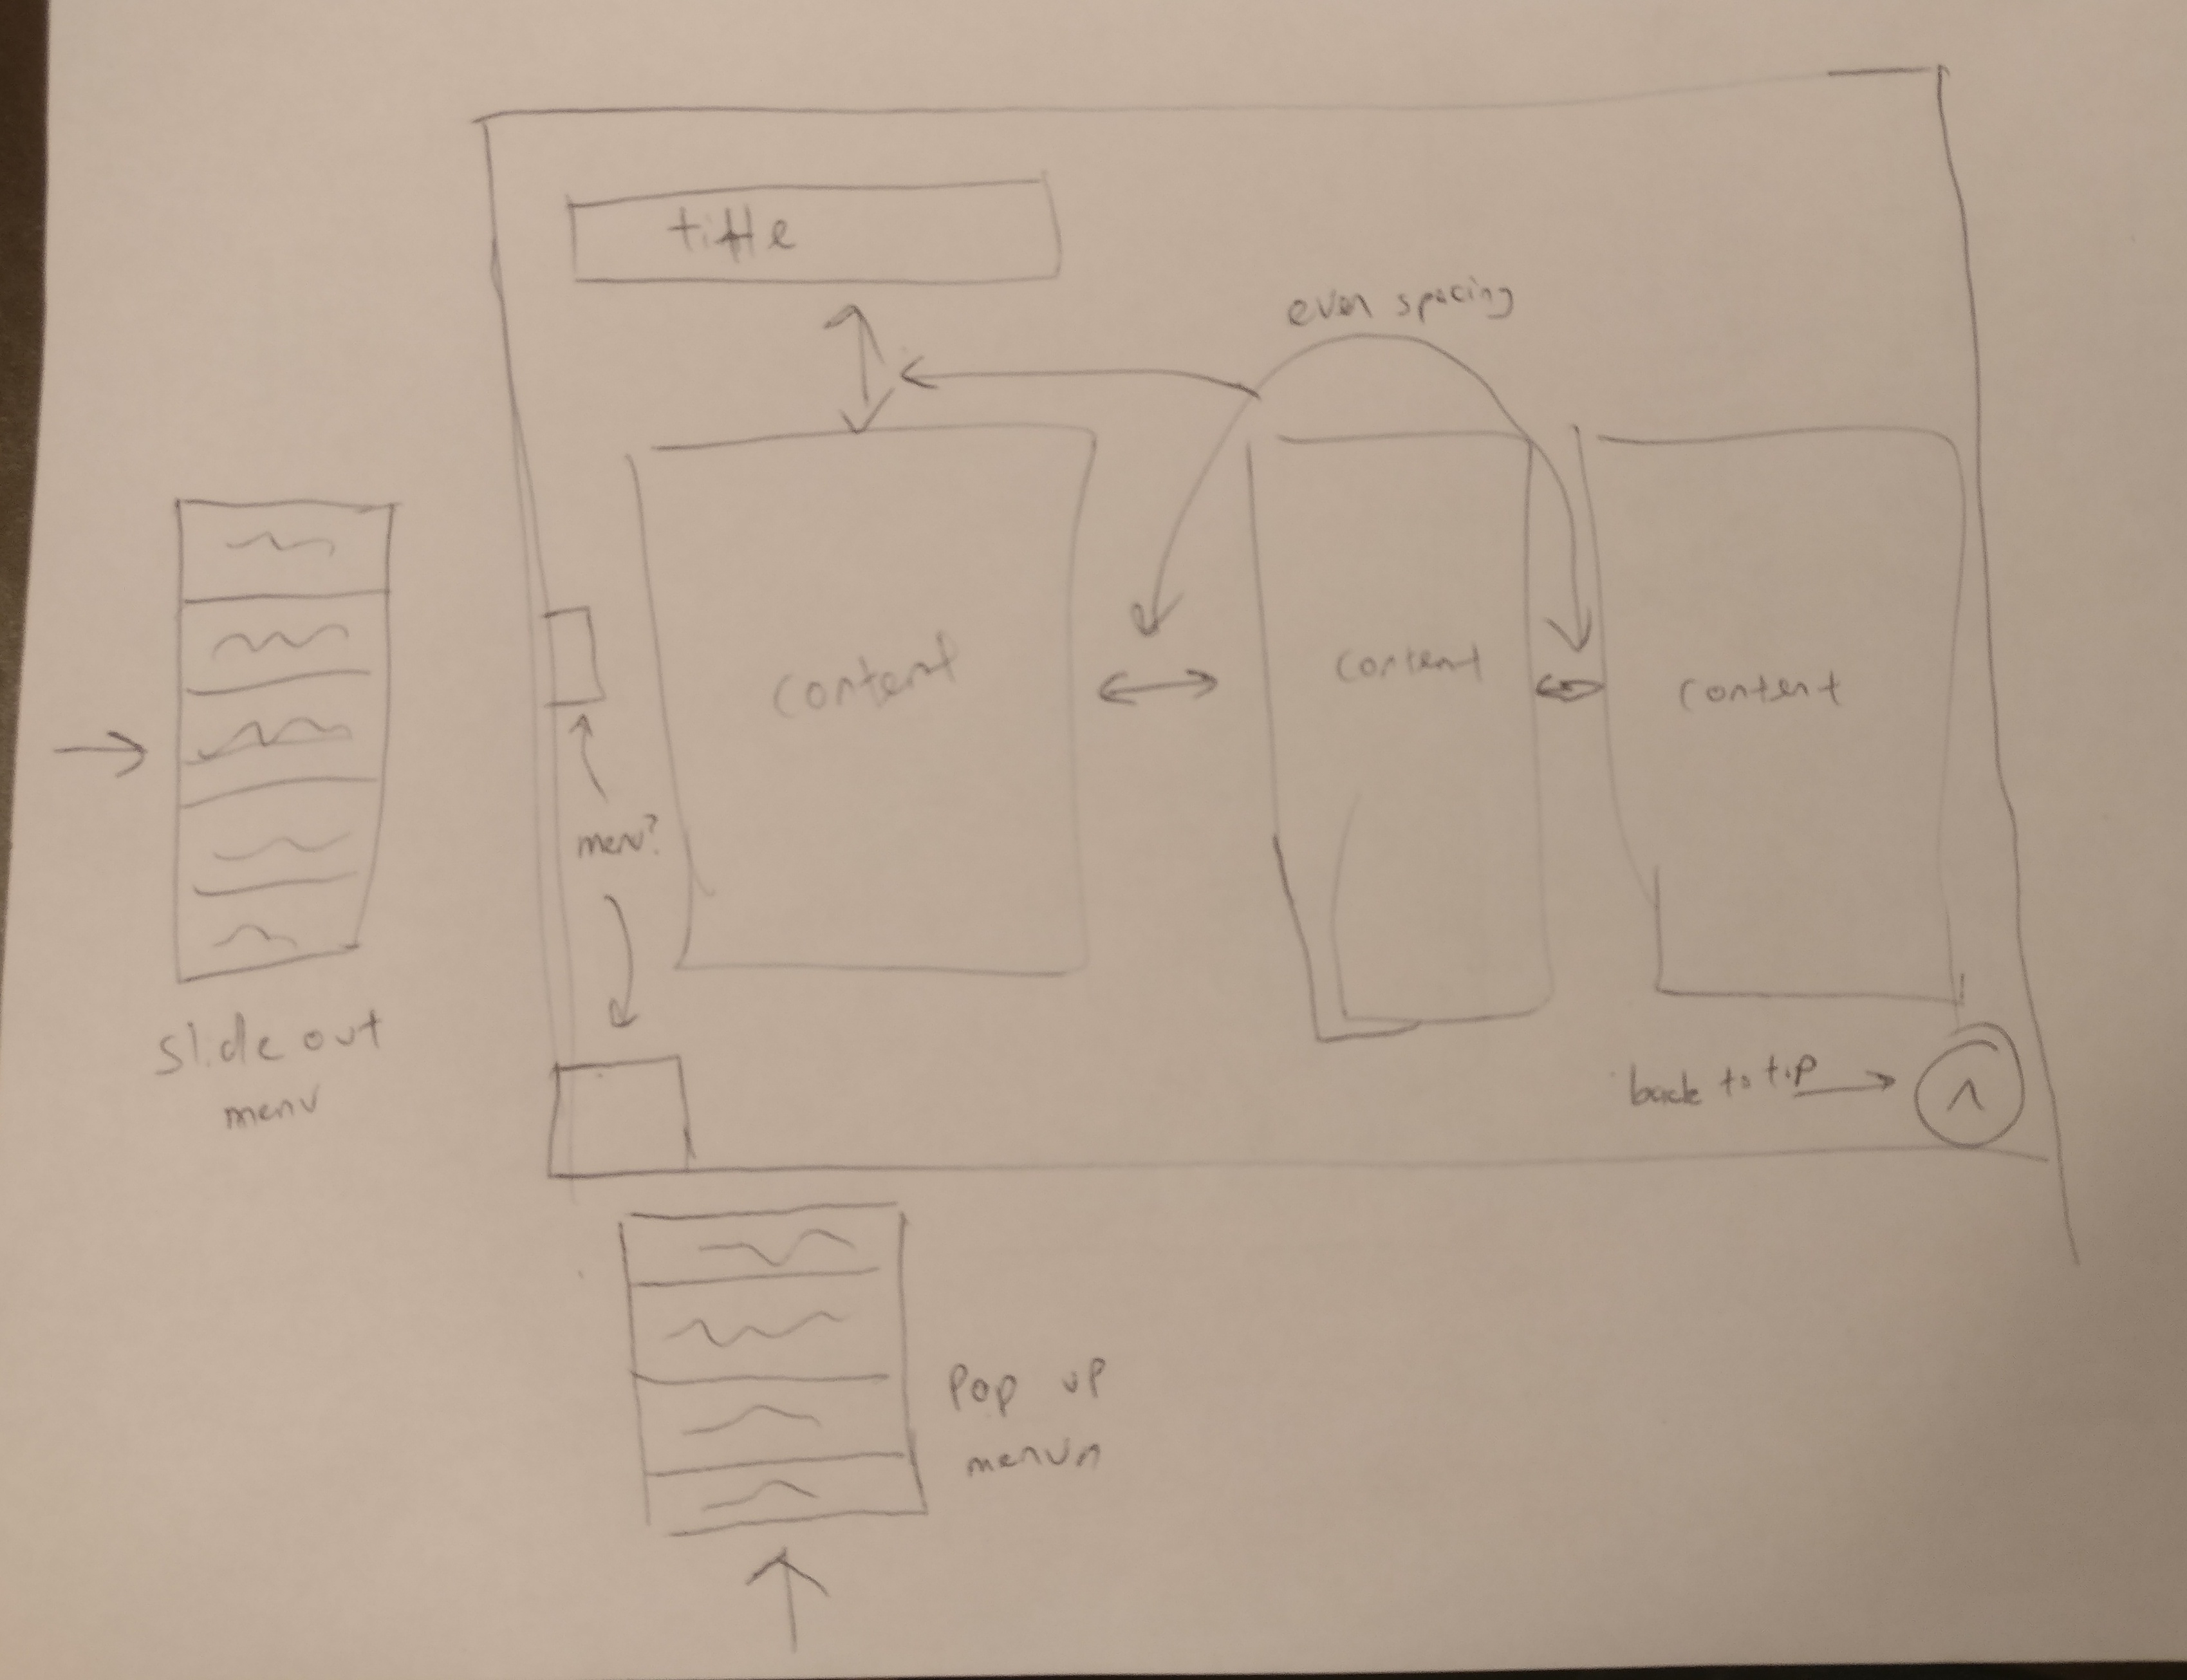 title
even spacing
content
content
content
menu?
slide out
menu
back to top
pop up
menun